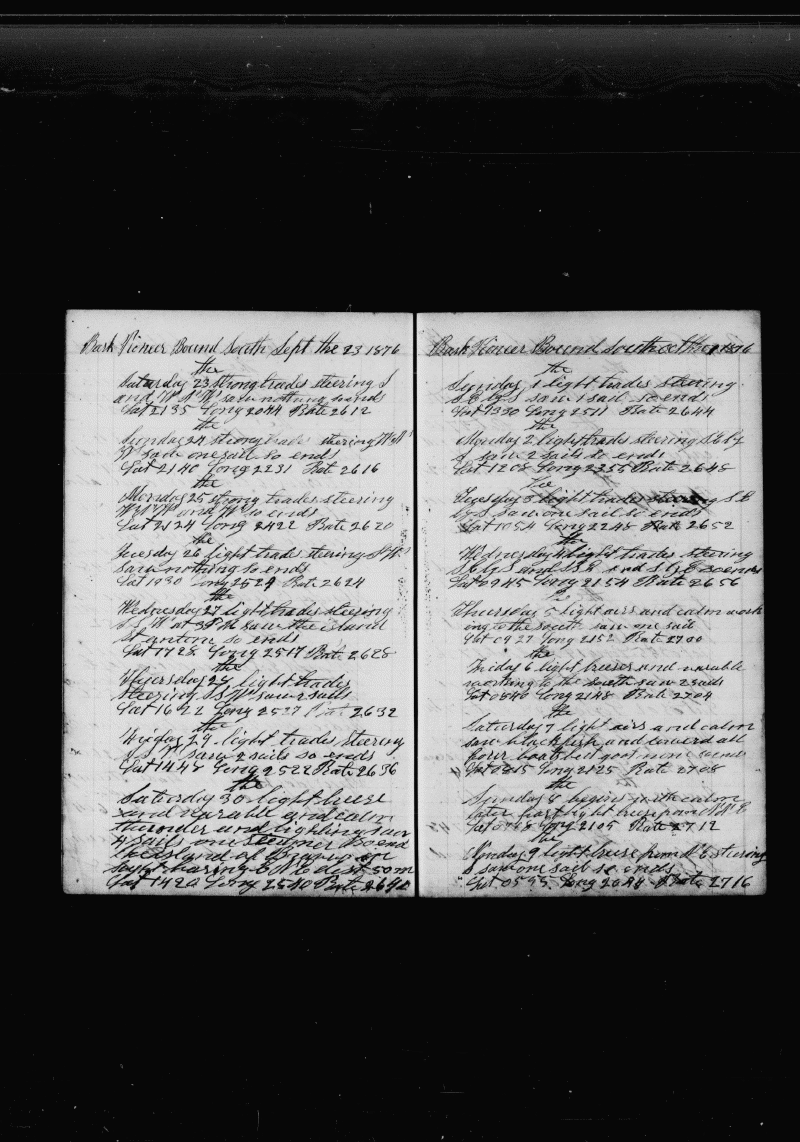 Bark Pioneer Bound South Sept the 23 1876
the
Saturday 23 Strong trades steering S
and W S W saw nothing so ends
Lat 2135 Long 2044 Rate 2612
the
Sunday 24 strong trades steering
W saw one sail so ends
Lat 2140 Long 2231 Rat 2616
the
Monday 25 strong trades steering
and W so ends
Lat 2124 Long 2422 Rate 2620
the
Tuesday 26 light trades steering S W
saw nothing so ends
Lat 1930 Long 2529 Rate 2624
the
Wednesday 27 light trades steering
S S W at 3 PM saw the island
St anton so ends
Lat 1728 Long 2517 Rat 2628
the
Thursday 28 light trades
steering S S W saw 2 sails
Lat 1622 Long 2527 Rat 2632
the
Friday 29 light trades steering
S S W saw 2 sails so ends
Lat 1447 Long 2522 Rate 2636
the
Saturday 30 light breese
and varable and calm
thunder and lighting saw
4 sails one steamer Bound
the island of Bravo in
sight baring E N E dist 50 m
Lat 1420 Long 2540 Rate 2640
Bark Pioneer Bound South oct the 1 1876
the
Sunday 1 light trades steering
S E by S saw 1 sail so ends
Lat 1330 Long 2511 Rate 2644
the
Monday 2 light trades steering S E by
S saw 2 sails so ends
Lat 1208 Long 2355 Rate 2648
the
Tuesday 3 light trades steering S E
by S saw one sail so ends
Lat 1054 Long 2248 Rate 2652
the
Wednesday 4 light trades steering
S E by S and S S E and S by E so ends
Lat 0945 Long 2154 Rate 2656
Thursday 5 light airs and calm work
ing to the south saw one sail
Lat 0927 Long 2152 Rate 2700
the
Friday 6 light breeses and varable
working to the south saw 2 sails
Lat 0840 Long 2148 Rate 2704
the
Saturday 7 light airs and calm
saw blackfish and lowerd all
four boats but got none so ends
Lat 0815 Long 2125 Rate 2708
the
Sunday 8 begins with calm
later part light breese from
Lat 0758 Long 2105 Rate 2712
the
Munday 9 light breese from N E steering
S saw one sail so ends
Lat 0535 Long 2044 Rate 2716